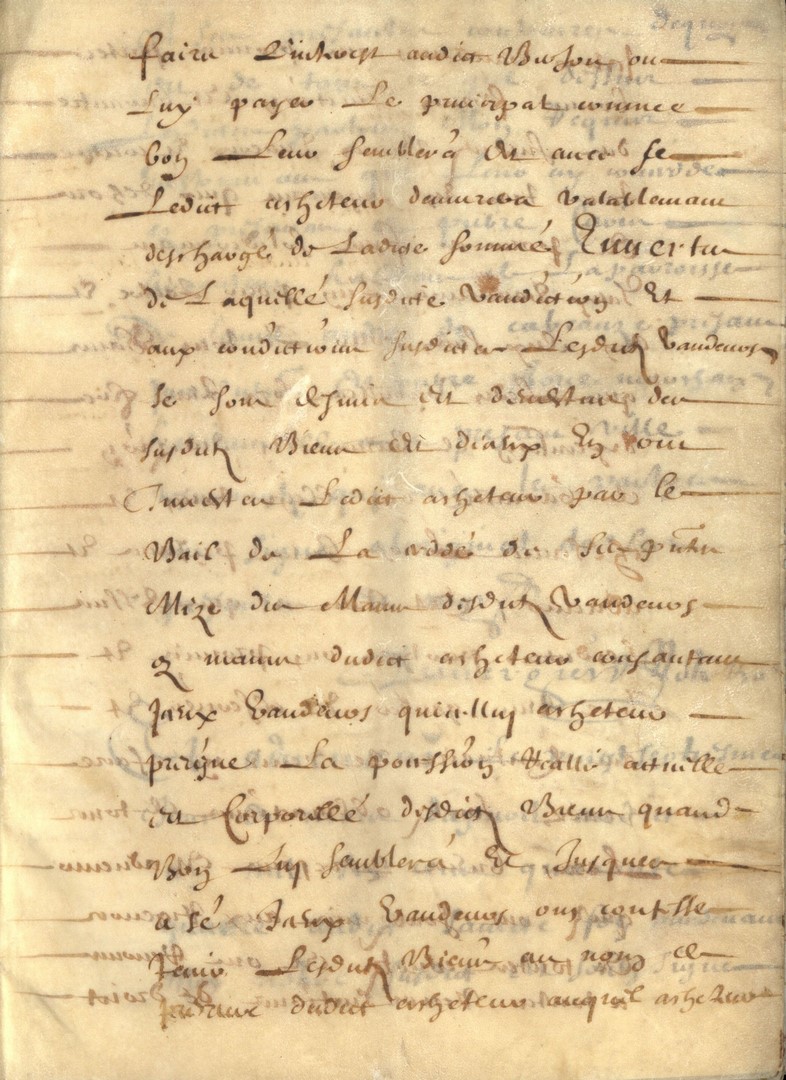 faire L'intherest audict Buson ou
Luy payer Le principal comme
bon Leur semblera Et avec se
Ledict acheteur demurera valablemant
descharge de Ladite somme En vertu
de Laquelle susdicte vandiction Et
aux condictions susdictes Lesdictz vandeurs
se sont desmis et desvestus des
susdictz Biens et diceux En ont
Investeu Ledict acheteur par le
Bail de La cedde de ses pntes
Mize des Mains desdictz vandeurs
es mains dudict acheteur consantant
Iceux vandeurs que Luy acheteur
preigne La pocession realle actuelle
et Corporelle desdictz Biens quand
Bon Luy semblera Et Jusques
a sé Iceux vandeurs ont confesse
tenir Lesdictz Biens au nom et
dudict acheteur auquel acheteur